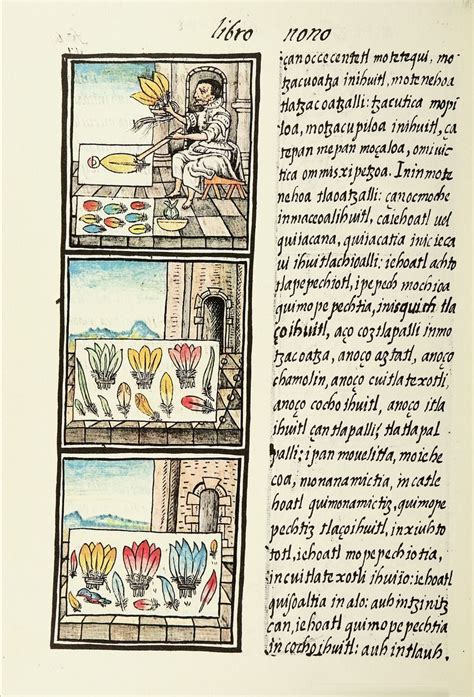 libro nono
çanoccecentetl motetequi, mo-
tzacuoatza inihuitl, motenehoa
tlatzacoatzalli: tzacutica mopi
loa, motzacupiloa inihuitl, ça
tepan mepan moçaloa, omivic
tica ommixipetzoa. Ininmote
nehoa tlaoatzalli: çanocmoche
inmaceoalihuitl, caiehoatl vel
quijacana, quijacatia iniciecа
vi ihuitlachioalli: iehoatl achto
tlapepechiotl, ipepech mochioa
quimopepechtia, inisquich tla
çoihuitl, aço coztlapalli inmo
tzacoatza, anoço aztatl, anoço
chamolin, anoço cuitlatexotli
anoço cochoihuitl, anoço itla
ihuitl cantlapalli; tlatlapal
palli: ipan movelitta, moiche
coa, nunanamictia, in catle
hoatl quimonamictiz, quimope
pechtiz tlaçoihuitl, inxiuhto
totl, iehoatl mopepechiotia,
incuitlatexotli ihuiio: iehoatl
quispaltia in alo: auh intzinitz
can, iehoatl quimopepechtia
in cochoihuitl: auh intlauh.